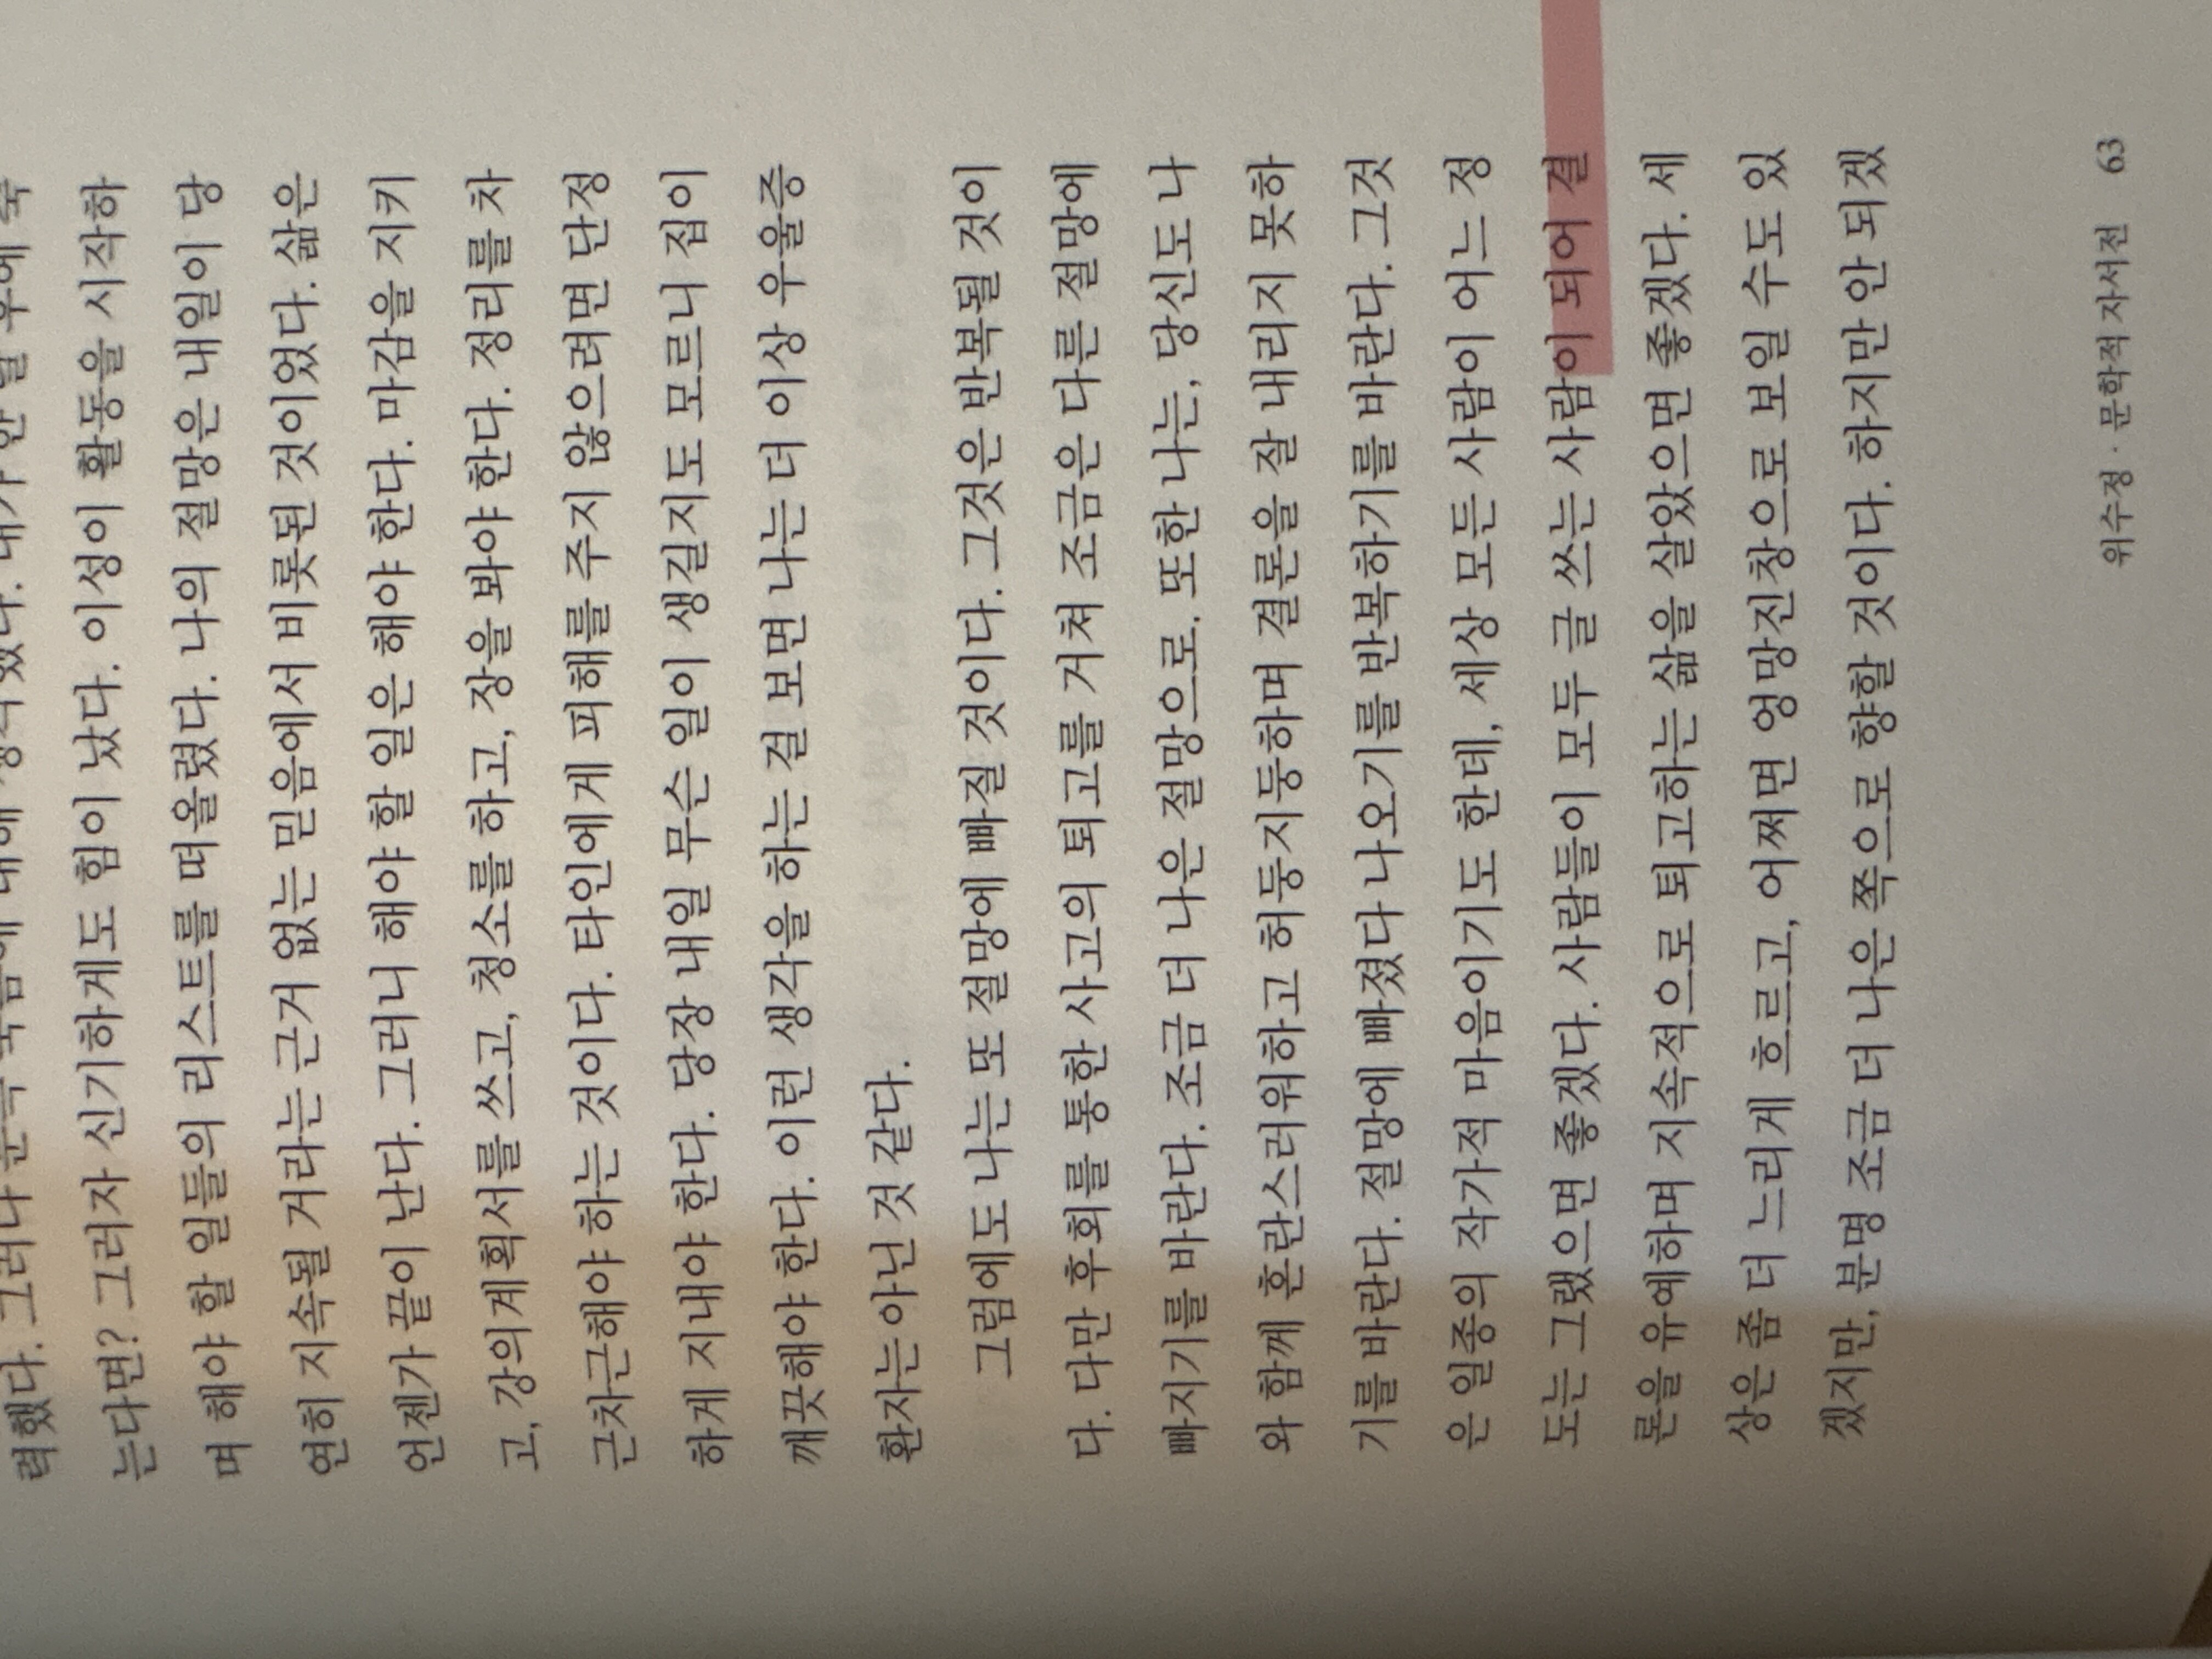 력했다. 그러나
는다면? 그러자 신기하게도 힘이 났다. 이성이 활동을 시작하
며 해야 할 일들의 리스트를 떠올렸다. 나의 절망은 내일이 당
연히 지속될 거라는 근거 없는 믿음에서 비롯된 것이었다. 삶은
언젠가 끝이 난다. 그러니 해야 할 일은 해야 한다. 마감을 지키
고, 강의계획서를 쓰고, 청소를 하고, 장을 봐야 한다. 정리를 차
근차근해야 하는 것이다. 타인에게 피해를 주지 않으려면 단정
하게 지내야 한다. 당장 내일 무슨 일이 생길지도 모르니 집이
깨끗해야 한다. 이런 생각을 하는 걸 보면 나는 더 이상 우울증
환자는 아닌 것 같다.
그럼에도 나는 또 절망에 빠질 것이다. 그것은 반복될 것이
다. 다만 후회를 통한 사고의 퇴고를 거쳐 조금은 다른 절망에
빠지기를 바란다. 조금 더 나은 절망으로. 또한 나는, 당신도 나
와 함께 혼란스러워하고 허둥지둥하며 결론을 잘 내리지 못하
기를 바란다. 절망에 빠졌다 나오기를 반복하기를 바란다. 그것
은 일종의 작가적 마음이기도 한데, 세상 모든 사람이 어느 정
도는 그랬으면 좋겠다. 사람들이 모두 글 쓰는 사람이 되어 결
론을 유예하며 지속적으로 퇴고하는 삶을 살았으면 좋겠다. 세
상은 좀 더 느리게 흐르고, 어쩌면 엉망진창으로 보일 수도 있
겠지만, 분명 조금 더 나은 쪽으로 향할 것이다. 하지만 안 되겠
위수정 · 문학적 자서전 63